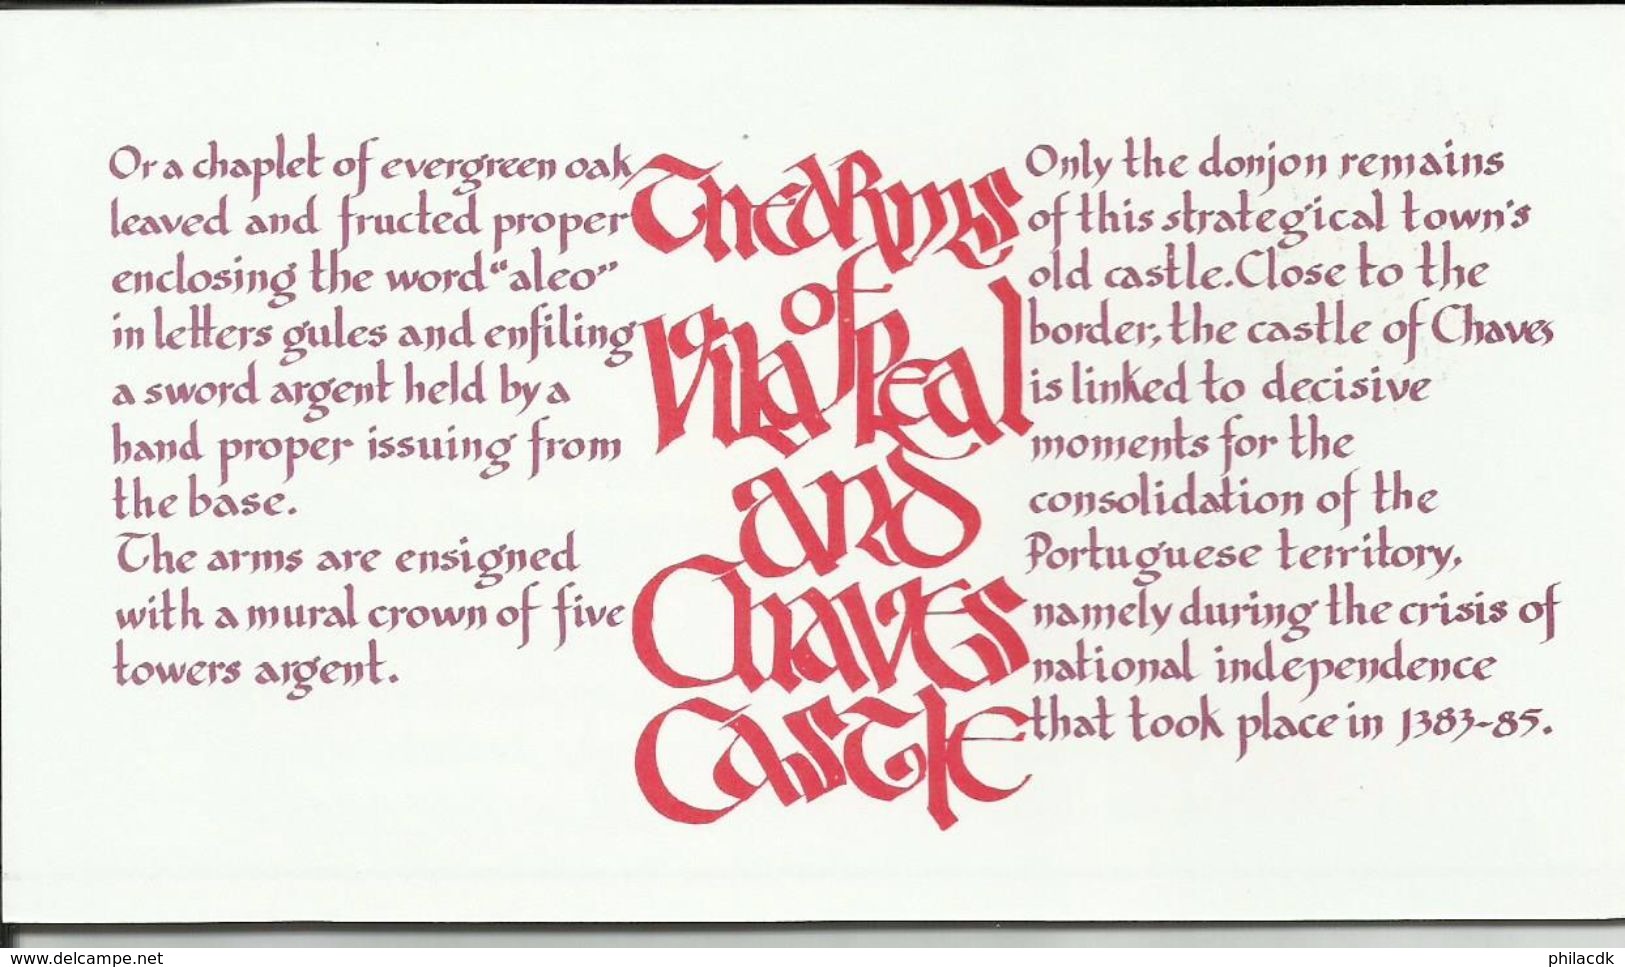 Or a chaplet of evergreen oak
leaved and fructed proper
enclosing the word "aleo"
in letters gules and enfiling
a sword argent held by a
hand proper issuing from
the base.
The arms are ensigned
with a mural crown of five
towers argent.
The Arms
of
Vila Real
and
Chaves
Castle
Only the donjon remains
of this strategical town's
old castle. Close to the
border, the castle of Chaves
is linked to decisive
moments for the
consolidation of the
Portuguese territory,
namely during the crisis of
national independence
that took place in 1383-85.
www.delcampe.net
philacdk